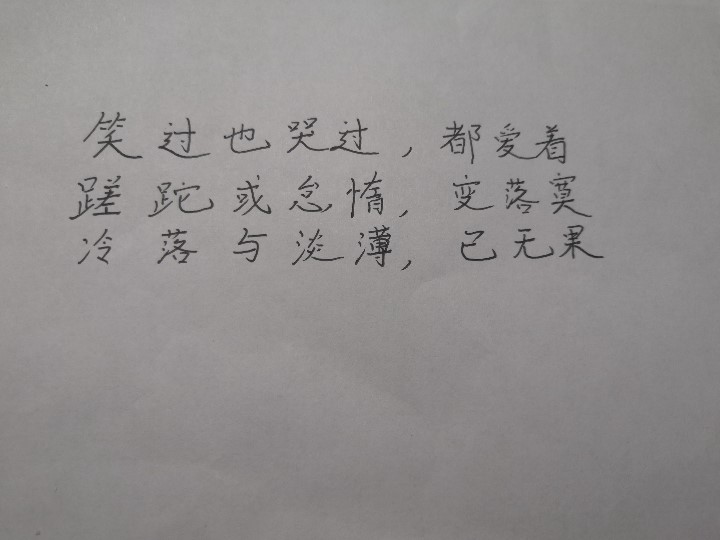 笑过也哭过，都爱着
蹉跎或怠惰，变落寞
冷落与淡薄，已无果